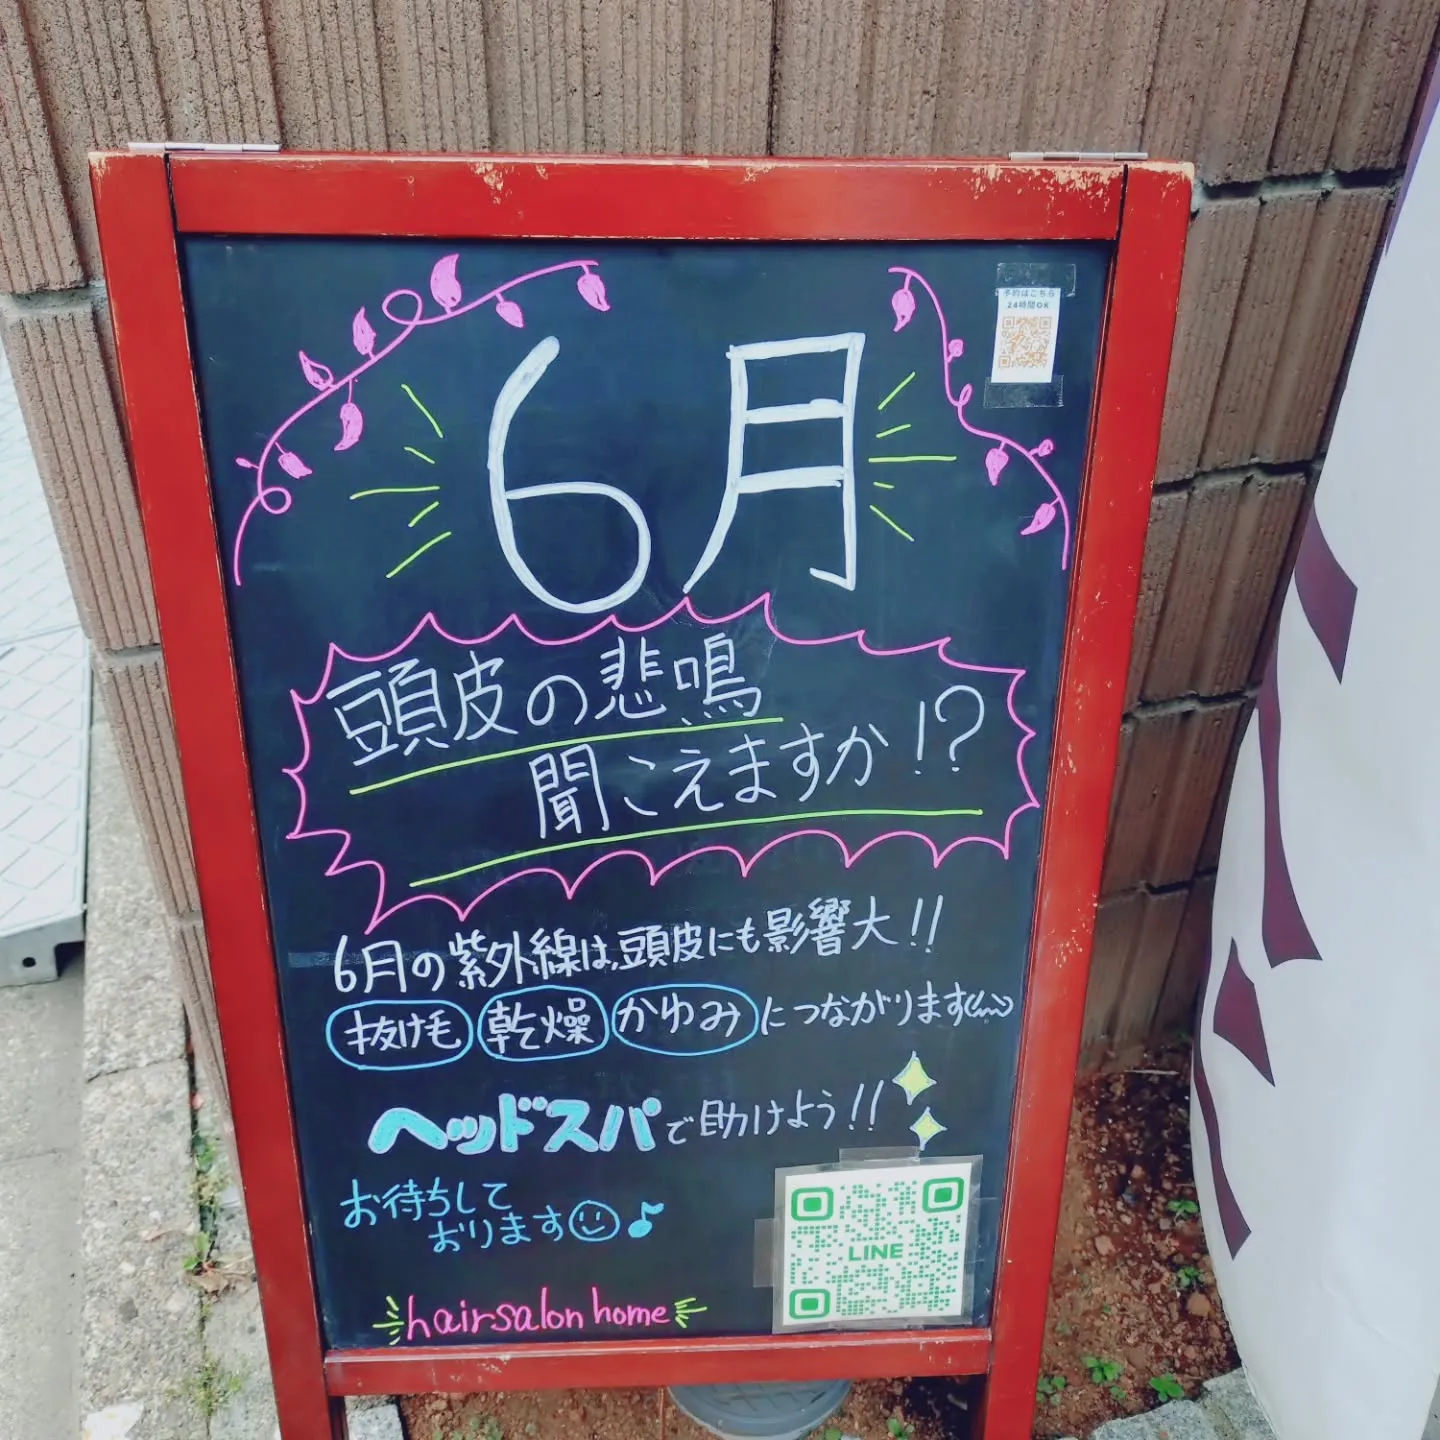 予約はこちら
24時間OK
6月
頭皮の悲鳴
聞こえますか!?
6月の紫外線は、頭皮にも影響大!!
抜け毛 乾燥 かゆみ につながります
ヘッドスパで助けよう!!
お待ちして
おります
LINE
hairsalon home